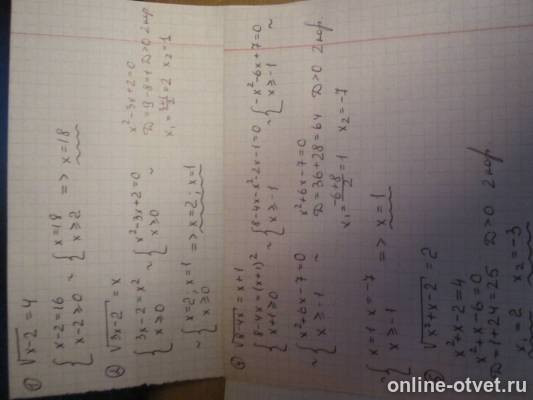 ① √x-2 = 4
{ x-2=16 x-2≥0 ~ { x=18 x≥2 => x=18
② √3x-2 = x
{ 3x-2=x² x≥0 ~ { x²-3x+2=0 x≥0 ~
x²-3x+2=0
D=9-8=1 D>0 2 кор
x₁=3+1/2=2 x₂=1
~ { x=2; x=1 x≥0 => x=2; x=1
√8-4x = x+1
{ 8-4x=(x+1)² x+1≥0 ~ { 8-4x-x²-2x-1=0 x≥-1 ~ { -x²-6x+7=0 x≥-1 ~
~ { x²+6x-7=0 x≥-1 ~
x²+6x-7=0
D=36+28=64 D>0 2 кор.
x₁=-6+8/2=1 x₂=-7
~ { x=1 x=-7 x≥-1 => x=1
√x²+x-2 = 2
x²+x-2=4
x²+x-6=0
D=1+24=25 D>0 2 кор
x₁=2 x₂=-3
online-otvet.ru